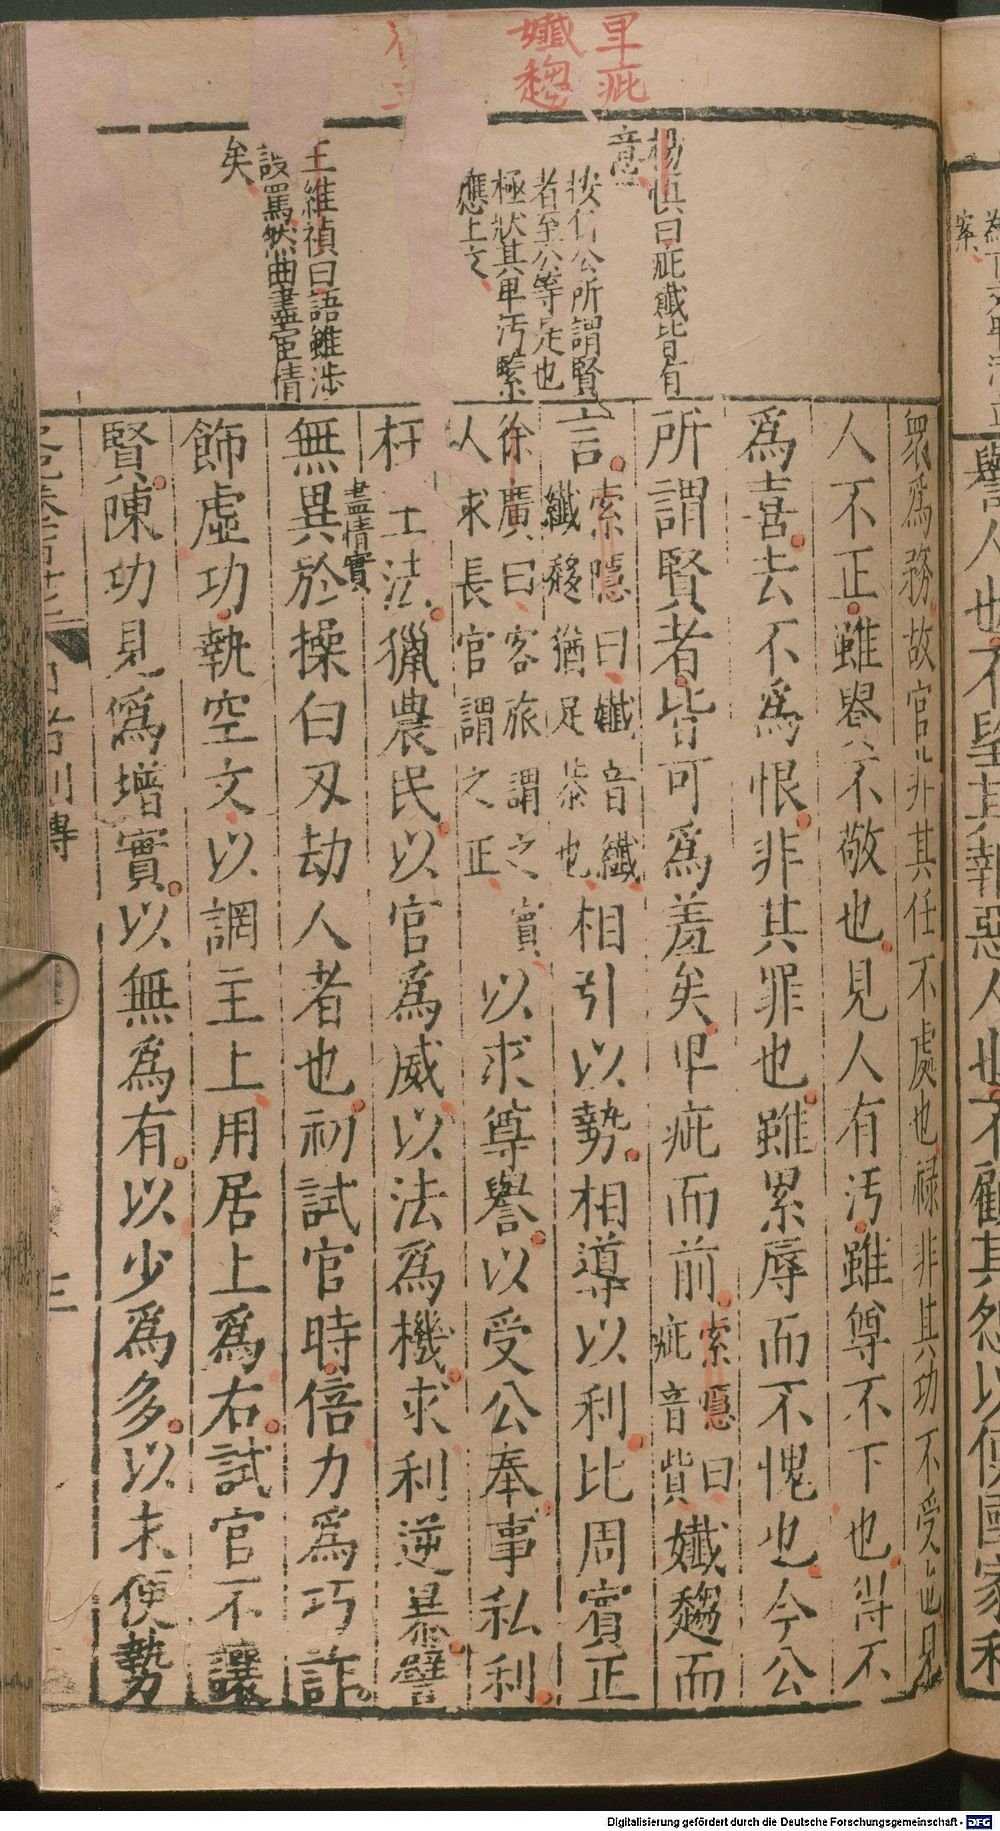 卑疵
孅趨
楊慎曰疵孅皆有
意
按何公所謂賢
者至公等是也
極狀其卑污緊
應上文
王維禎曰語雖涉
設罵然曲盡宦情
矣
衆爲務故官非其任不處也祿非其功不受也見
人不正雖貴不敬也見人有污雖尊不下也得不
爲喜去不爲恨非其罪也雖累辱而不愧也今公
所謂賢者皆可爲羞矣卑疵而前
索隱曰
疵音貲
孅趨而
言
索隱曰孅音纖
纖趨猶足恭也
相引以勢相導以利比周賓正
徐廣曰客旅謂之賓
人求長官謂之正
以求尊譽以受公奉事私利
枉主法獵農民以官爲威以法爲機求利逆暴譬
盡情實
無異於操白刃劫人者也初試官時倍力爲巧詐
飾虛功執空文以誷主上用居上爲右試官不讓
賢陳功見爲增實以無爲有以少爲多以求便勢
日者列傳
三
譽人也不望其報惡人也不顧其怨以便國家利
Digitalisierung gefördert durch die Deutsche Forschungsgemeinschaft - DFG